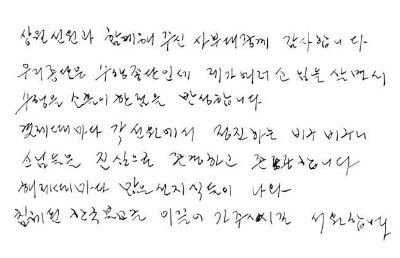 상월선원과 함께해 주신 사부대중께 감사합니다
우리종단은 수행종단인데 제가 여러 소임을 살면서
수행을 소홀히 한점을 반성합니다
결제때마다 각 선원에서 정진하는 비구 비구니
스님들을 진심으로 존경하고 존중합니다
해제때마다 많은 선지식들이 나와
침체된 한국불교를 이끌어 가주시길 서원합니다